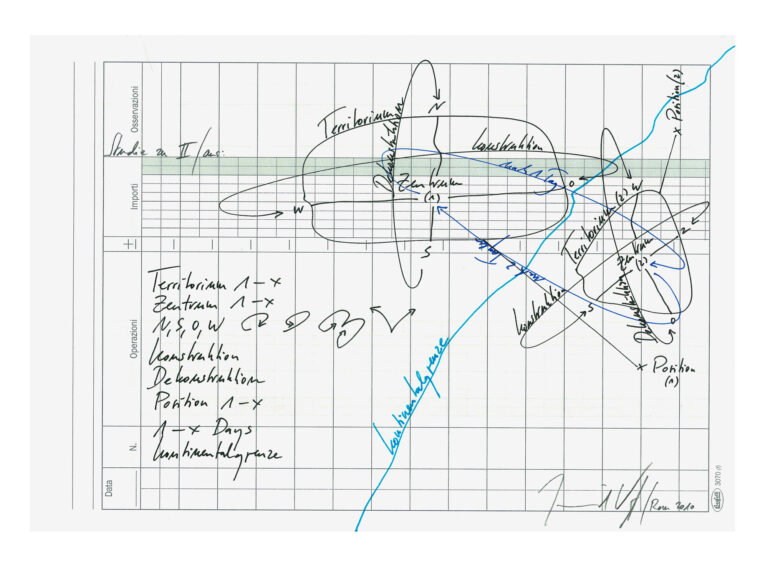 Osservazioni
Importi
Operazioni
N.
Data
Studie zu II/aus:
Territorium
Dekonstruktion
N
Konstruktion
nach 1 Tag
Zentrum
(1)
W
O
S
Position (2)
W
Territorium (2)
N
Zentrum
(2)
Dekonstruktion
Konstruktion
S
O
Position
(1)
Kontinentalgrenze
Territorium 1-x
Zentrum 1-x
N, S, O, W
Konstruktion
Dekonstruktion
Position 1-x
1-x Days
Kontinentalgrenze
Rom 2010
3070